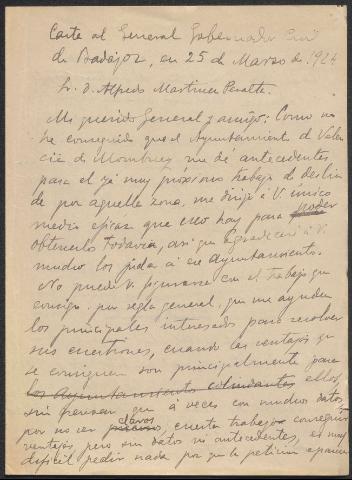 Carta al General Gobernador Civil
de Badajoz, en 25 de Marzo de 1924
Sr. D. Alfredo Martinez Peralta.
Mi querido General y amigo: Como no
he conseguido que el Ayuntamiento de Valen
cia de Mombuey me dé antecedentes
para el ya muy próximo trabajo de deslin
de por aquella zona, me dirijo a V. único
medio eficaz que creo hay para poder
obtenerlos todavía, así que agradeceré a V.
mucho los pida á ese Ayuntamiento.
No puede V. figurarse con el trabajo que
consigo por regla general, que me ayuden
los principales interesados para resolver
sus cuestiones, cuando las ventajas que
se consiguen son principalmente para
los Ayuntamientos colindantes ellos,
sin pensar que á veces con muchos datos
por no ser claros, cuesta trabajo conseguir
ventajas pero sin datos ni antecedentes, es muy
difícil pedir nada por que la petición aparece